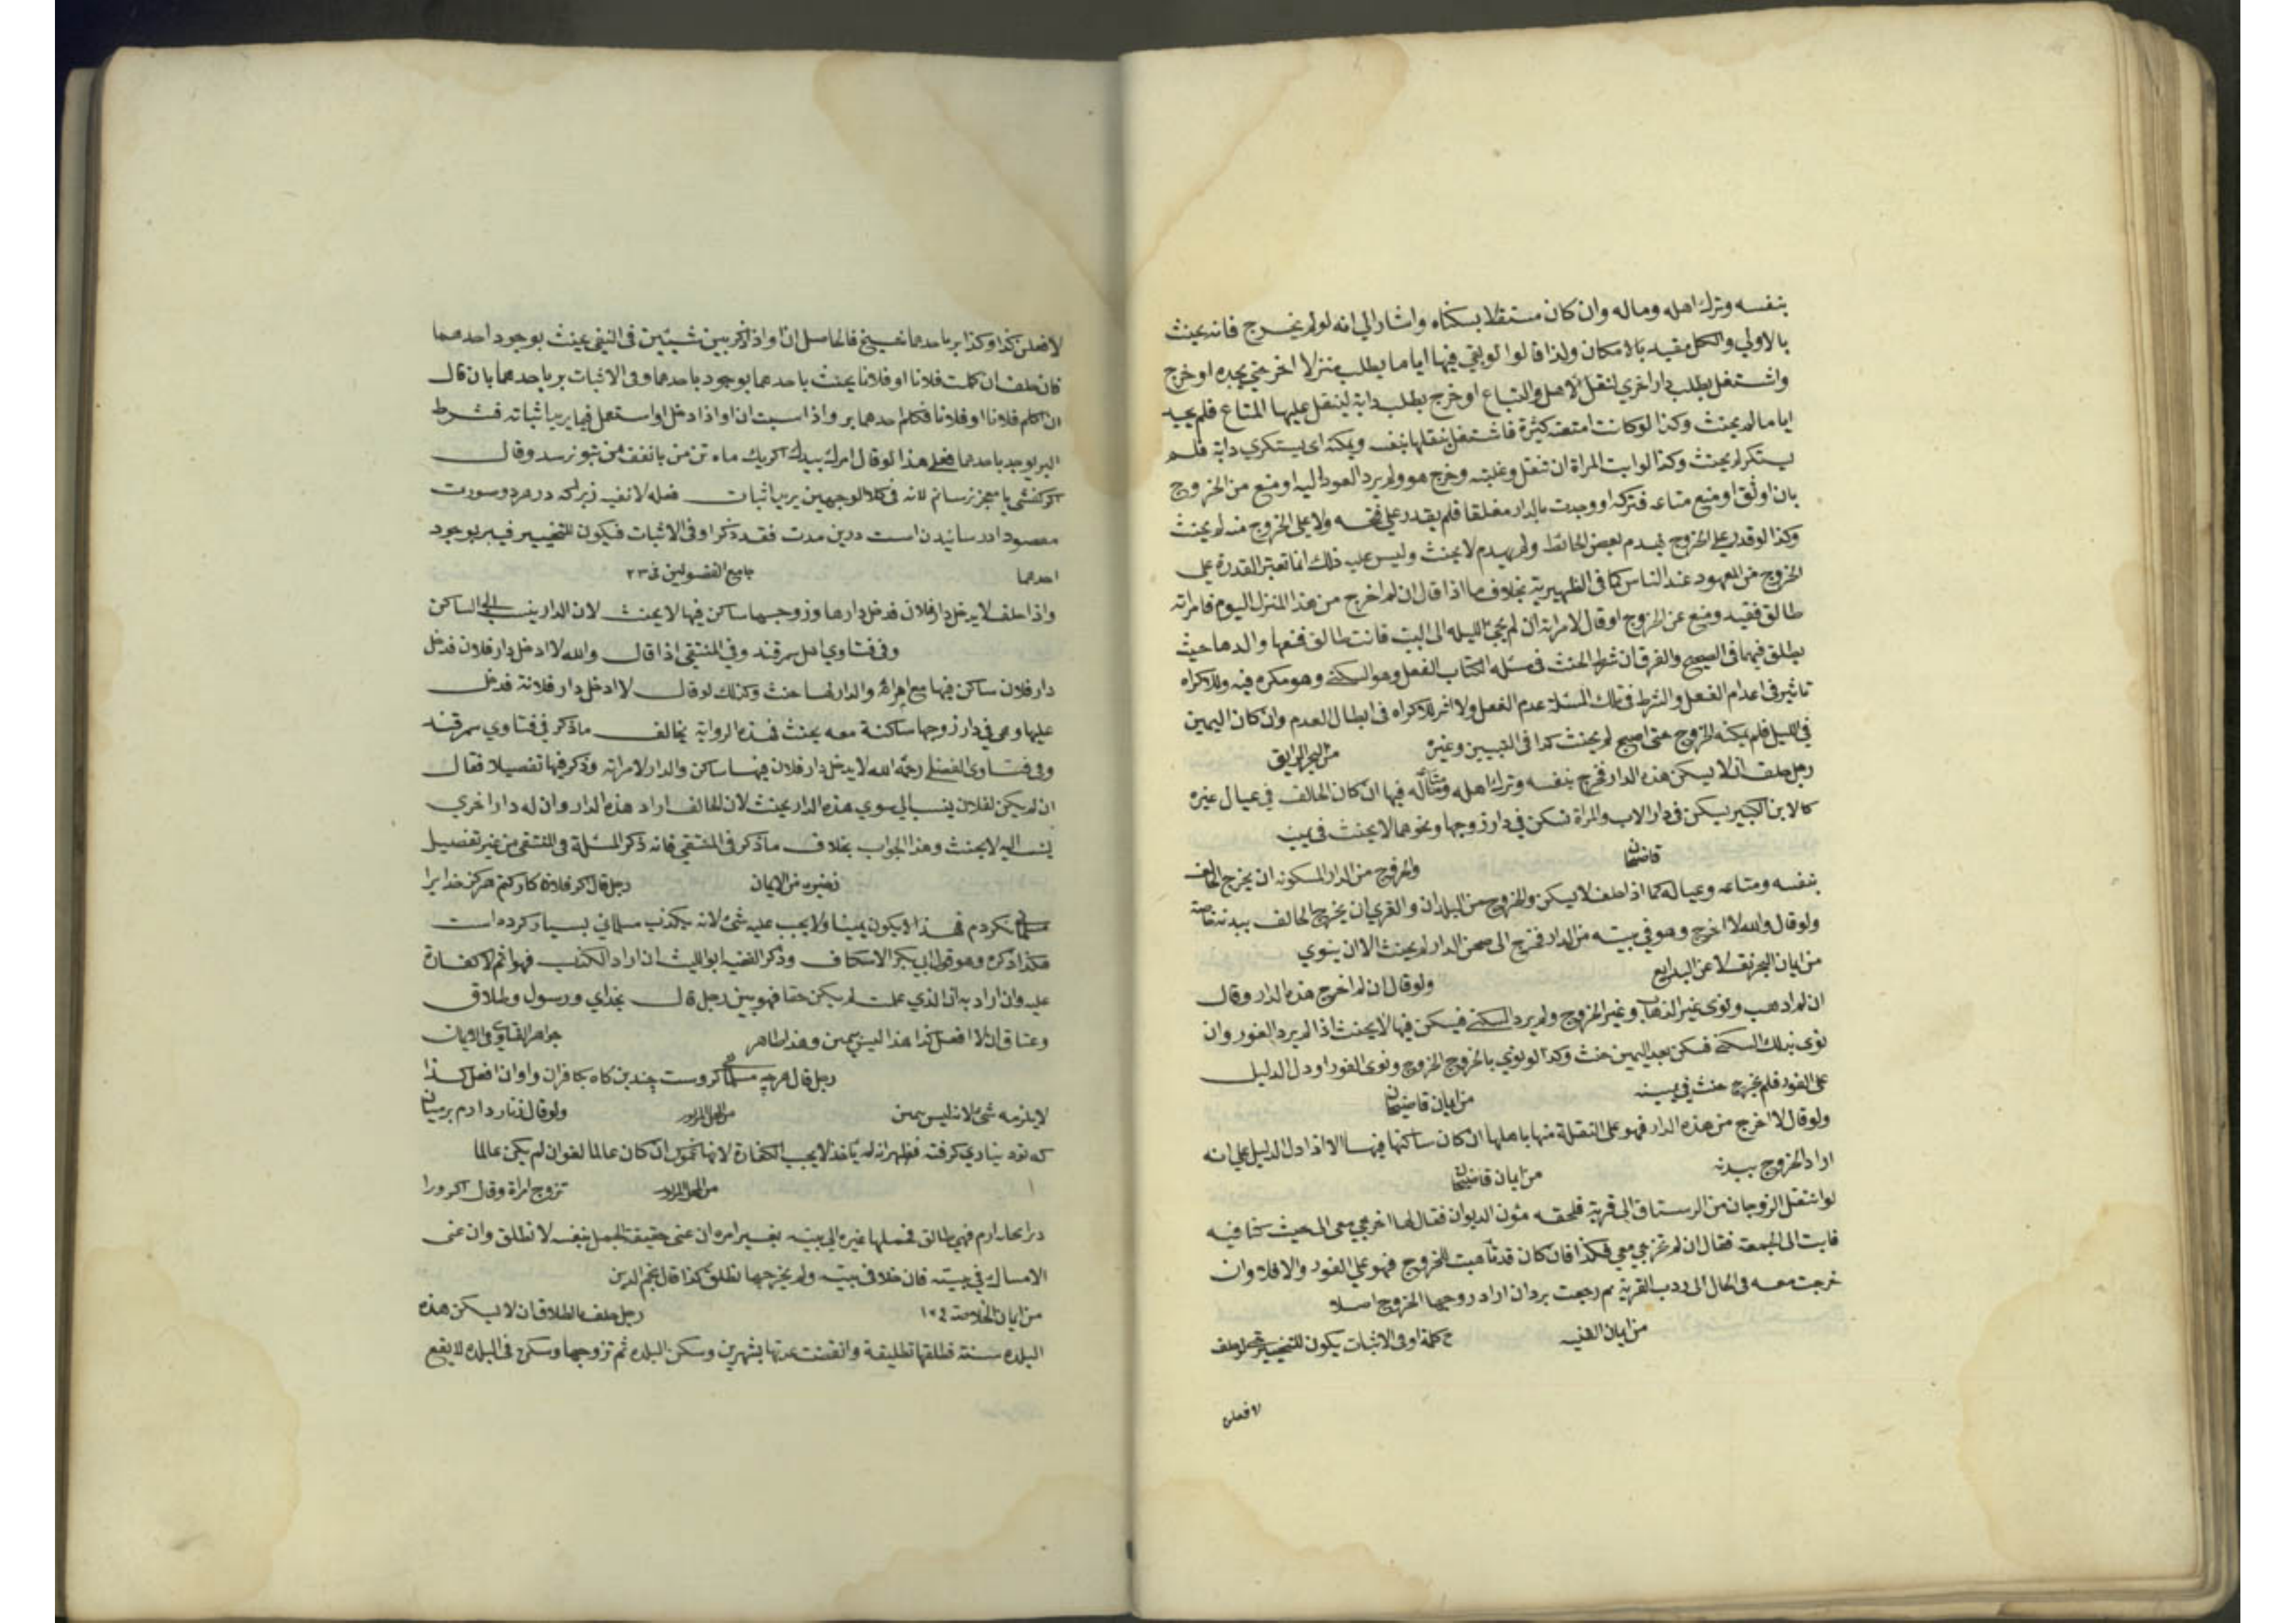 بنفسه وترك اهله وماله وان كان مستقلا بسكناه واشار الي انه لو لم يخرج فانه يحنث
بالاولي والكل مقيد بالامكان ولذا قالوا لو بقي فيها اياما يطلب منزلا اخر حتي يجده او خرج
واشتغل بطلب دار اخري لنقل الاهل والمتاع او خرج يطلب دابة لينقل عليها المتاع فلم يجد
اياما لم يحنث وكذا لو كانت امتعته كثيرة فاشتغل بنقلها بنفسه ويمكنه ان يستكري دابة فلم
يستكر لم يحنث وكذا لو ابت المراة ان تنتقل وغلبته وخرج هو ولم يرد العود اليه او منع من الخروج
بان اوثق او منع متاعه فتركه او وجدت باب الدار مغلقا فلم يقدر علي فتحه ولا علي الخروج منه لم يحنث
وكذا لو قدر علي الخروج بهدم بعض الحائط ولم يهدم لا يحنث وليس عليه ذلك انما تعتبر القدرة علي
الخروج من المعهود عند الناس كما في الظهيرية بخلاف ما اذا قال ان لم اخرج من هذا المنزل اليوم فامراته
طالق فقيد ومنع عن الخروج او قال لامراته ان لم تجئ الليلة الي البيت فانت طالق فمنعها والدها حيث
يطلق فيهما في الصحيح والفرق ان شرط الحنث في مسئلة الكتاب الفعل وهو السكني وهو مكره فيه وللاكراه
تاثير في اعدام الفعل والشرط في تلك المسئلة عدم الفعل ولا اثر للاكراه في ابطال العدم وان كان اليمين
في الليل فلم يمكنه الخروج حتي اصبح لم يحنث كذا في التبيين وغيره من البحر الرايق
رجل حلف ان لا يسكن هذه الدار فخرج بنفسه وترك اهله ومتاعه فيها ان كان الحالف في عيال غيره
كالابن الكبير يسكن في دار الاب والمراة تسكن في دار زوجها ونحوهما لا يحنث في يمينه
قاضيخان والخروج من الدار المسكونه ان يخرج الحالف
بنفسه ومتاعه وعياله كما اذا حلف لا يسكن والخروج من البلدان والقري ان يخرج الحالف ببدنه خاصة
ولو قال والله لا اخرج وهو في بيته من الدار فخرج الى صحن الدار لم يحنث الا ان ينوي
من ايمان البحر نقلا عن البدايع ولو قال ان لم اخرج هذه الدار وقال
ان لم اذهب ونوي غير الذهاب وغير الخروج ولم يرد السكني فيسكن فيها لا يحنث اذا لم يرد الفور وان
نوي بذلك السكني فسكن بعد اليمين حنث وكذا لو نوي بالخروج الخروج ونوي الفور او دل الدليل
علي الفور فلم يخرج حنث في يمينه من ايمان قاضيخان
ولو قال لا اخرج من هذه الدار فهو علي النقلة منها باهلها ان كان ساكنها فيها الا اذا دل الدليل علي انه
اراد الخروج ببدنه من ايمان قاضيخان
لو انتقل الزوجان من الرستاق الي قرية فلحقه مؤن الديوان فقال لها اخرجي معي الي حيث كنا فيه
فابت الي الجمعة فقال ان لم تخرجي معي فكذا فان كان قد تأهبت للخروج فهو علي الفور والا فلا وان
خرجت معه في الحال الي درب القرية ثم رجعت بر وان اراد زوجها الخروج اصلا
من ايمان القنيه كلمة او في الاثبات يكون للتخيير
لافعلن
لافعلن كذا وكذا بر باحدهما فالحاصل ان او اذا ذكر بين شيئين في النفي يحنث بوجود احدهما
كان حلف ان كلمت فلانا او فلانا يحنث باحدهما بوجود باحدهما وفي الاثبات بر باحدهما بان قال
ان اكلم فلانا او فلانا فكلم احدهما بر واذا اسبت ان او اذا دخل او استعمل فيما يريد اثباته فشرط
البر يوجد باحدهما فعلي هذا لو قال امرك بيدك اكر يك ماه
لانه في كلا الوجهين يريد اثبات فعله لا نفيه زيرا كه در هر دو صورت
مقصود در رسانيدن است درين مدت فقد ذكر او في الاثبات فيكون للتخيير فيبر بوجود
احدهما جامع الفصولين في ٢٣
واذا حلف لا يدخل دار فلان فدخل دارها وزوجها ساكن فيها لا يحنث لان الدار ينسب الي الساكن
وفي فتاوي اهل سمرقند وفي المنتقي اذا قال والله لا ادخل دار فلان فدخل
دار فلان ساكن فيها مع امراته والدار لها حنث وكذلك لو قال لا ادخل دار فلانة فدخل
عليها وهي في دار زوجها ساكنة معه يحنث فهذه الرواية يخالف ما ذكر في فتاوي سمرقند
وفي فتاوي الفضلي رحمه الله لا يدخل دار فلان فيها ساكن والدار لامراته وذكر فيها تفصيلا فقال
ان لم يكن لفلان ينسب اليه سوي هذه الدار يحنث لان الحالف اراد هذه الدار وان له دار اخري
ينسب اليه لا يحنث وهذا الجواب بخلاف ما ذكر في المنتقي فانه ذكر المسئلة في المنتقي من غير تفصيل
ذخيره من الايمان رجل قال اكر فلان كار كنم هركز خدايرا
نكردم فهذا لا يكون يمينا ولا يجب عليه شيء لانه يكذب مسلماني بسيار كرده است
هكذا ذكره وهو قول ابي بكر الاسكاف وذكر الفقيه ابو الليث ان اراد الكذب فهو اثم لا كفارة
عليه وان اراد به ان الذي عملت لم يكن حقا فهو يمين رجل قال بخداي ورسول وطلاق
وعتاق ان لا افعل كذا هذا ليس بيمين وهذا ظاهر جواهر الفتاوي في الايمان
رجل قال هرچه مسلماني كروست چندين كاه بكافران دادم ان افعل كذا
لا يلزمه شيء لانه ليس بيمين من المحل المزبور ولو قال زنار دارم برميان
فظهر انه لم ياخذ لا يجب الكفارة لانها غموس ان كان عالما لغو ان لم يكن عالما
من المحل المزبور تزوج امراة وقال اكر ورا
فهي طالق فحملها غيره الي بيته بغير امره ان عني حقيقة الحمل بنفسه لا تطلق وان عني
الامساك في بيته فان خلا في بيته ولم يخرجها تطلق كذا قال نجم الدين
من ايمان الخلاصة رجل حلف بالطلاق ان لا يسكن هذه
البلده سنة فطلقها تطليقة وانقضت عدتها بشهرين وسكن البلده ثم تزوجها وسكن في البلده لا يقع